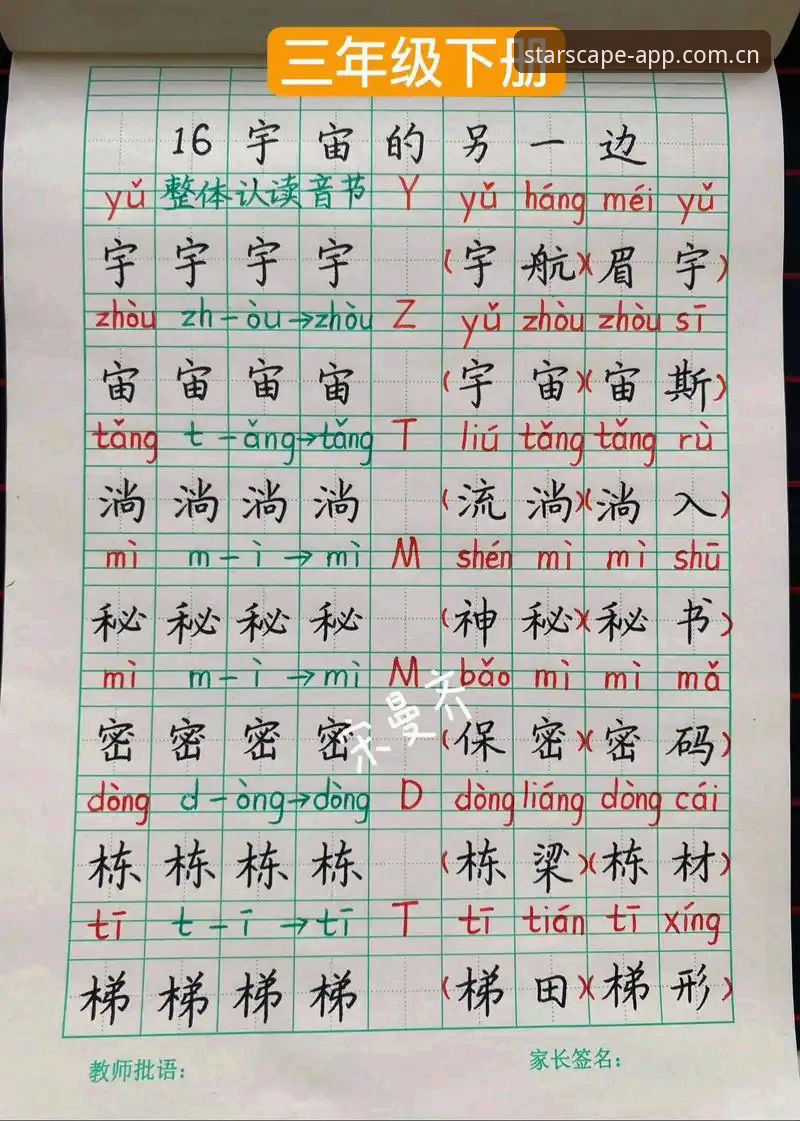 三年级下册
starscape-app.com.cn
16 宇宙的另一边
yǔ 整体认读音节 Y yǔ háng méi yǔ
宇 宇 宇 宇 (宇航)(眉宇)
zhòu zh-òu→zhòu Z yǔ zhòu zhòu sī
宙 宙 宙 宙 (宇宙)(宙斯)
tǎng t-ǎng→tǎng T liú tǎng tǎng rù
淌 淌 淌 淌 (流淌)(淌入)
mì m-ì→mì M shén mì mì shū
秘 秘 秘 秘 (神秘)(秘书)
mì m-ì→mì M bǎo mì mì mǎ
密 密 密 密 (保密)(密码)
宋曼齐
dòng d-òng→dòng D dòng liáng dòng cái
栋 栋 栋 栋 (栋梁)(栋材)
tī t-ī→tī T tī tián tī xíng
梯 梯 梯 梯 (梯田)(梯形)
教师批语： 家长签名：